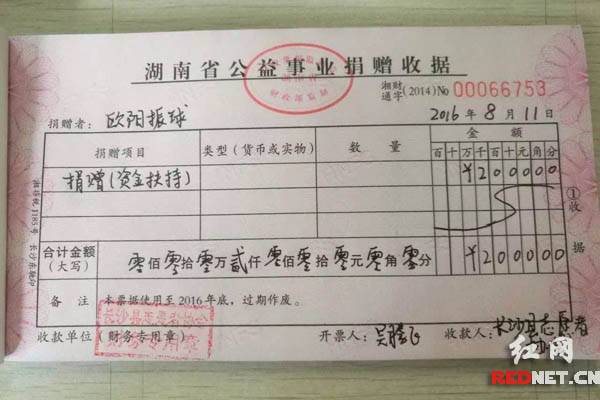 湖南省公益事业捐赠收据
湘财通字(2014)No 00066753
捐赠者：欧阳振球 2016年8月11日
捐赠项目 类型（货币或实物） 数量 金额
百十万千百十元角分
捐赠(资金扶持) ¥200000
合计金额（大写） 零佰零拾零万贰仟零佰零拾零元零角零分 ¥200000
备注 本票据使用至2016年底，过期作废。
收款单位（财务专用章） 开票人：吴腾飞 收款人：长沙县志愿者
①收据
红网
REDNET.CN